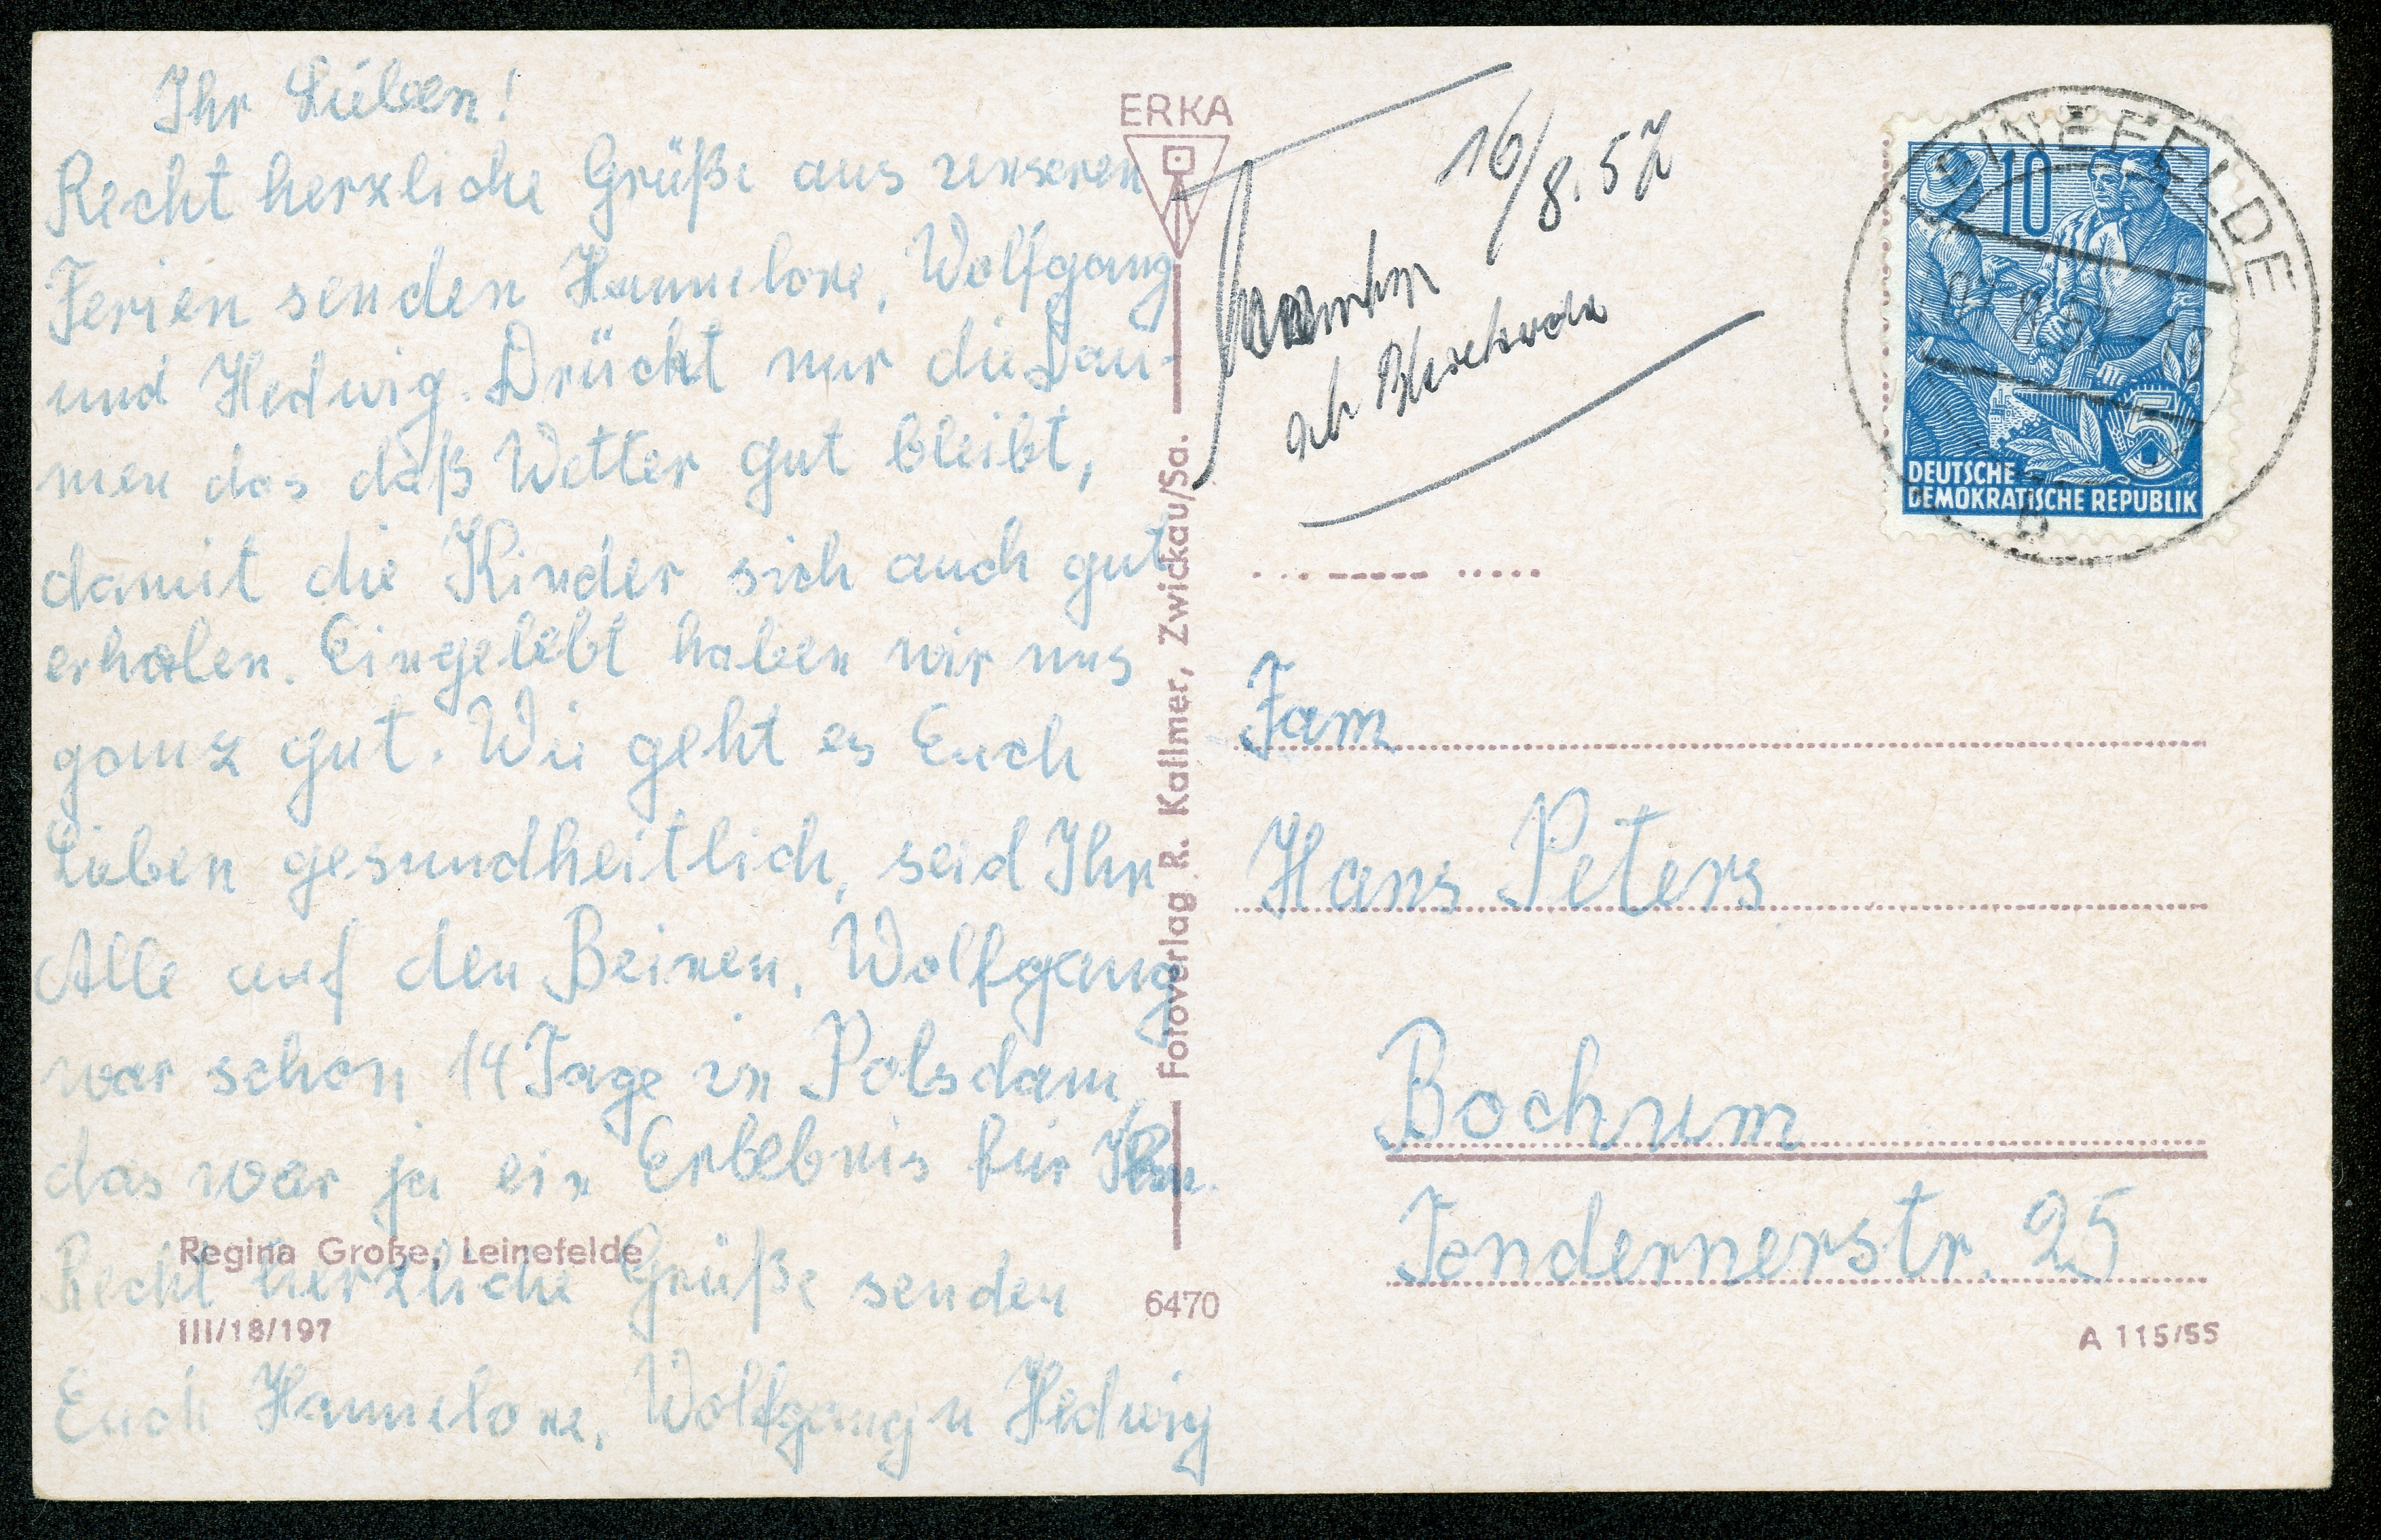 Ihr Lieben!
Recht herzliche Grüße aus unseren
Ferien senden Hannelore, Wolfgang
und Hedwig. Drückt nur die Dau-
men das daß Wetter gut bleibt,
damit die Kinder sich auch gut
erholen. Eingelebt haben wir uns
ganz gut. Wie geht es Euch
Lieben gesundheitlich, seid Ihr
Alle auf den Beinen, Wolfgang
war schon 14 Tage in Potsdam,
das war ja ein Erlebnis für Ihn.
Recht herzliche Grüße senden
Euch Hannelore, Wolfgang u Hedwig
Regina Große, Leinefelde
III/18/197
ERKA
Fotoverlag R. Kallmer, Zwickau/Sa.
6470
16/8.57
LEINEFELDE
b
10
5
DEUTSCHE
DEMOKRATISCHE REPUBLIK
Fam
Hans Peters
Bochum
Tondernerstr. 25
A 115/55